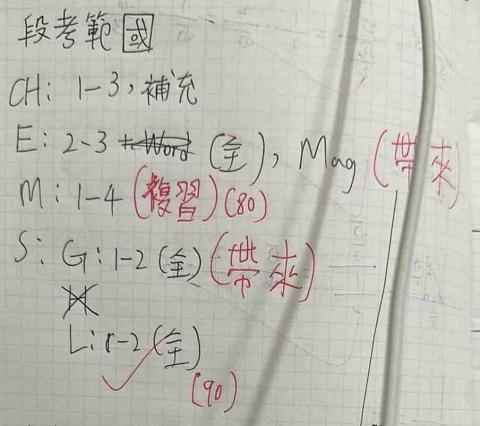 段考範國
CH: 1-3，補充
E: 2-3 +Word (全), Mag (帶來)
M: 1-4 (複習) (80)
S: G: 1-2 (全) (帶來)
L: 1-2 (全)
(90)